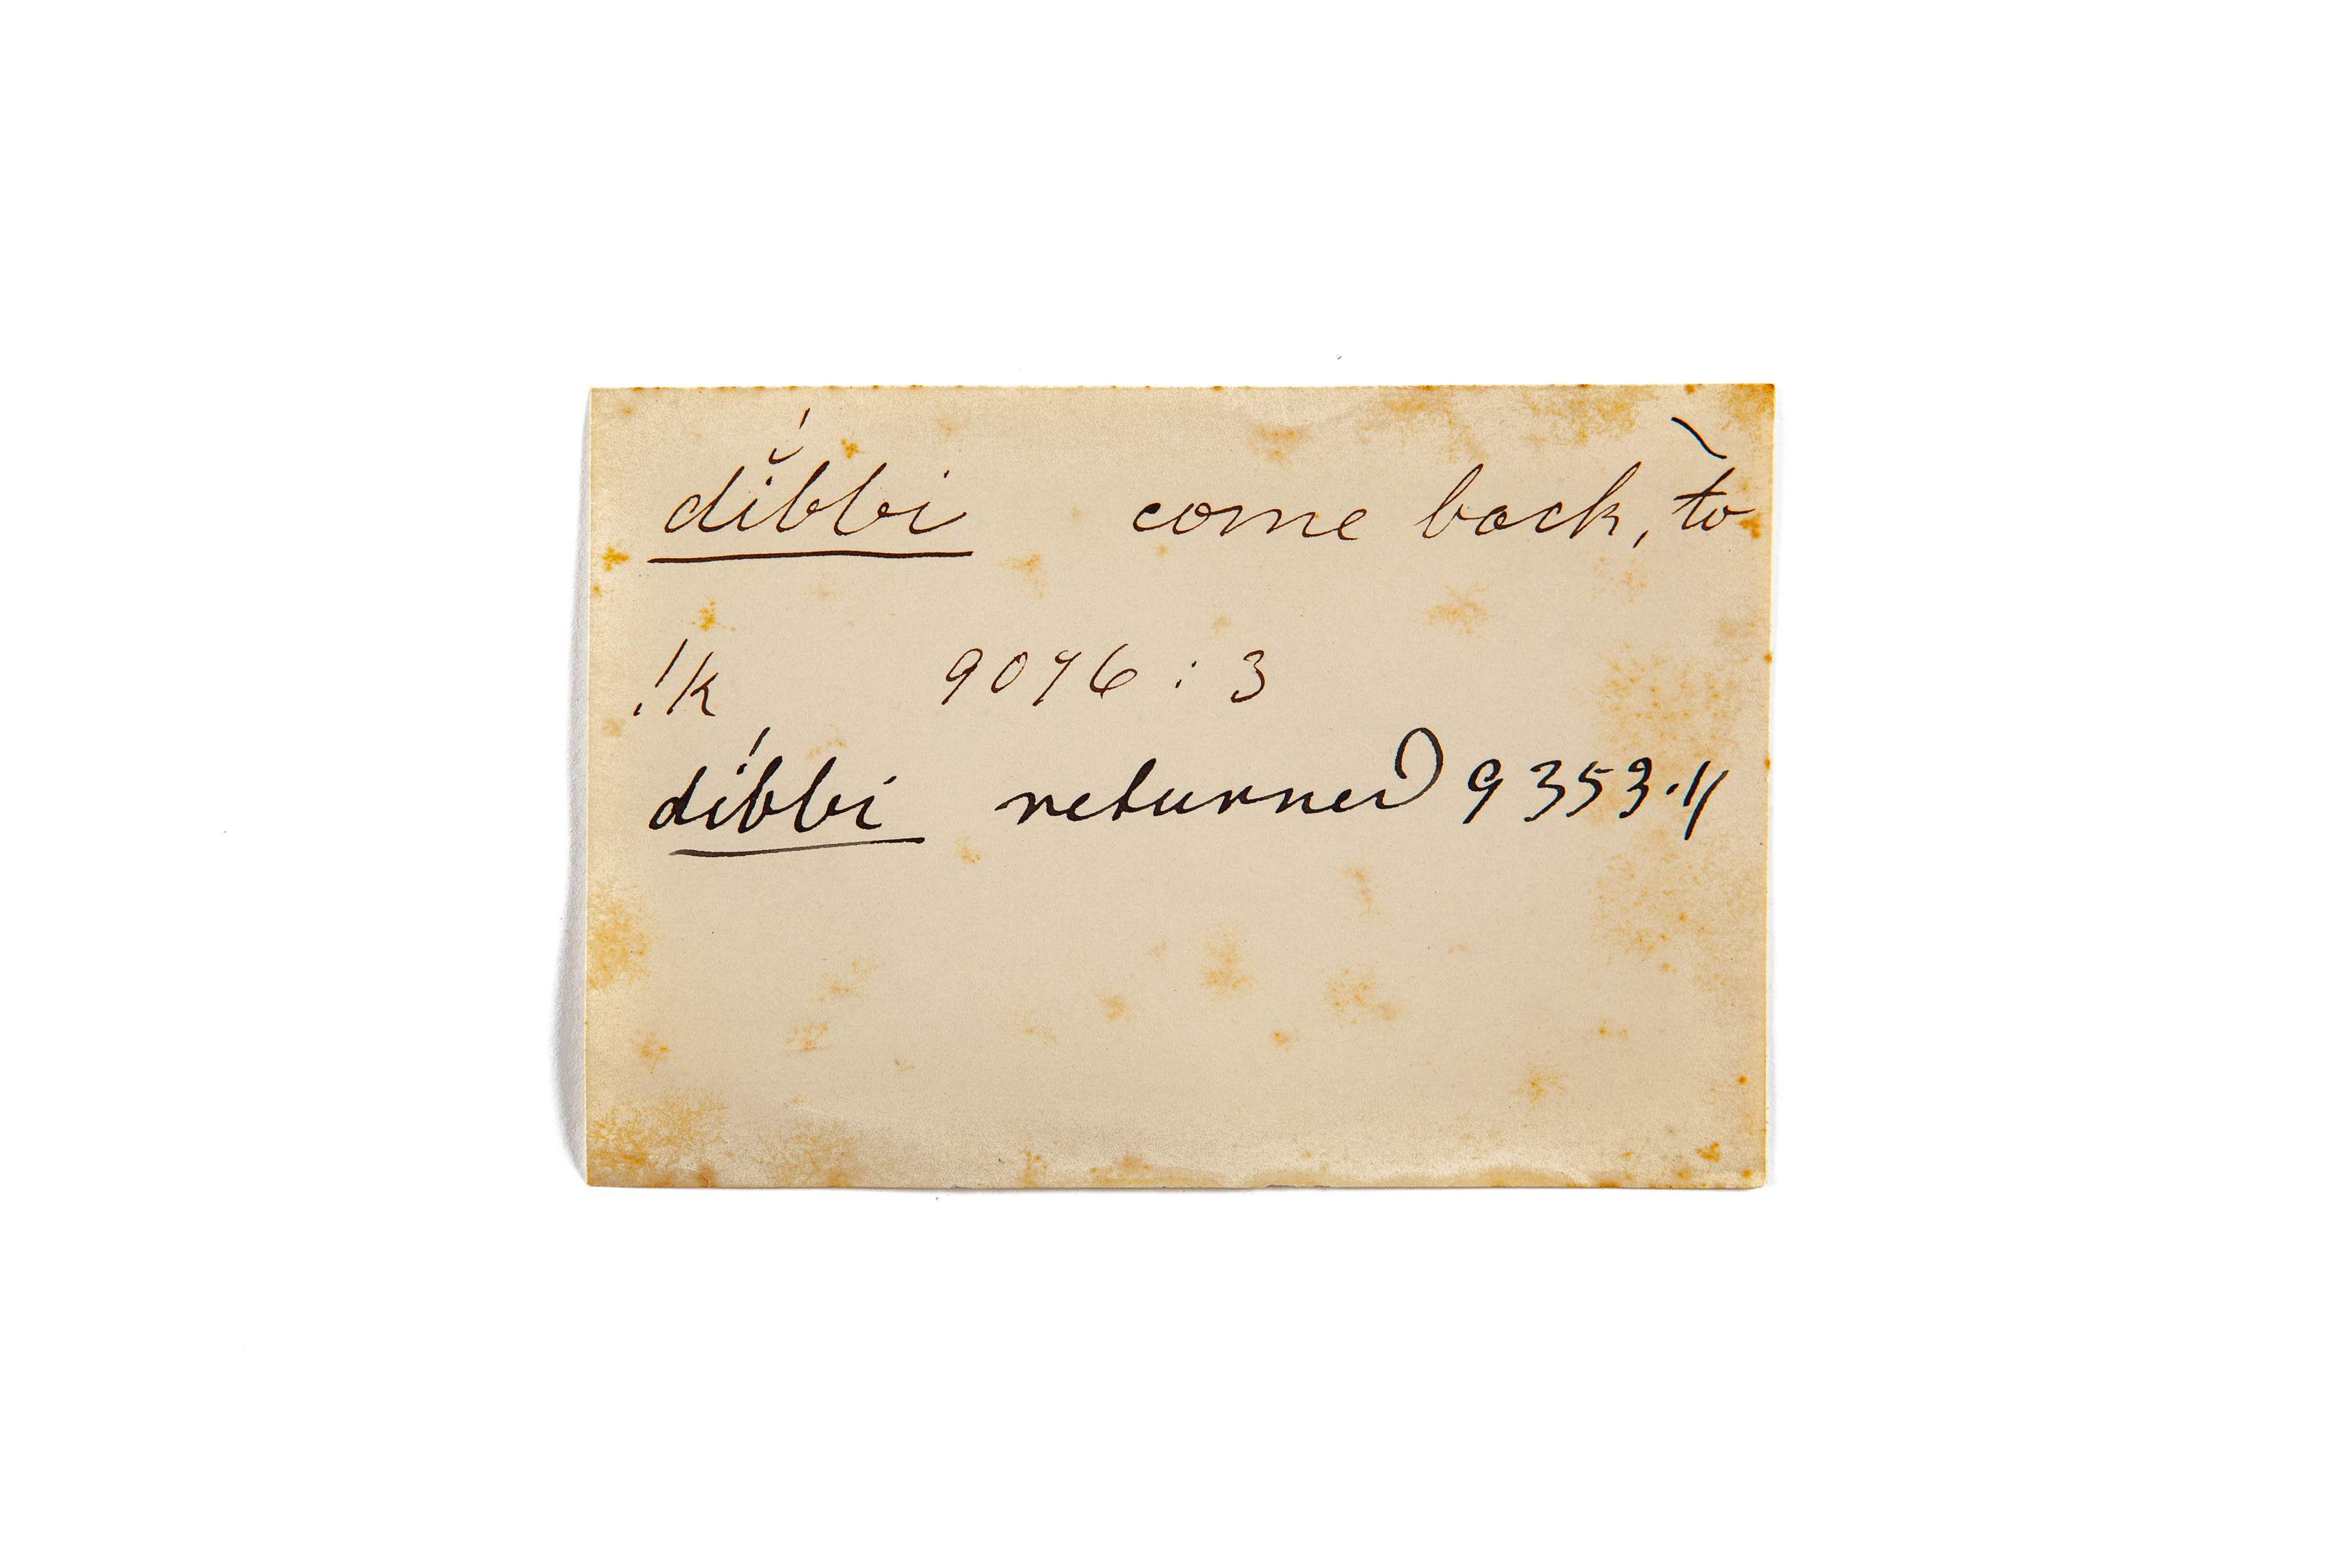 dĭ́bbi come back, to
!k 9096 : 3
díbbi returned 9353·11